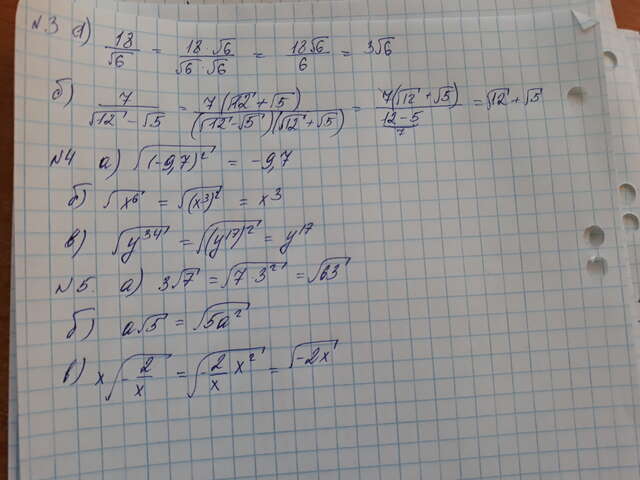 №3 а) 18/√6 = 18√6/√6·√6 = 18√6/6 = 3√6
б) 7/√12 - √5 = 7(√12 + √5)/(√12 - √5)(√12 + √5) = 7(√12 + √5)/12 - 5 = √12 + √5
№4 а) √(-9,7)² = -9,7
б) √x⁶ = √(x³)² = x³
в) √y³⁴ = √(y¹⁷)² = y¹⁷
№5 а) 3√7 = √7·3² = √63
б) a√5 = √5a²
в) x√-2/x = √-2x²/x = √-2x